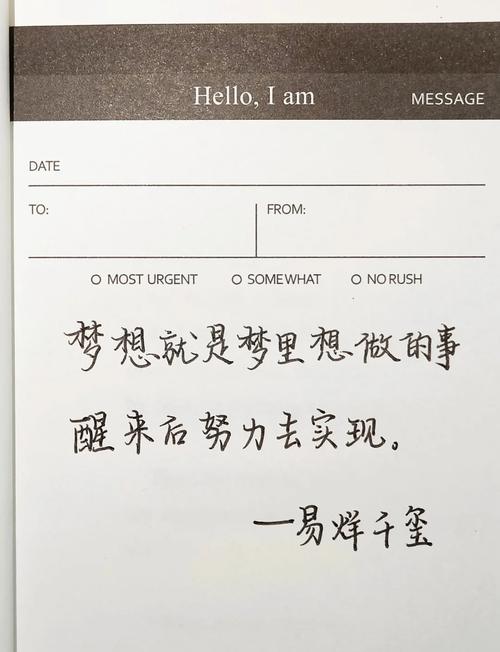 Hello, I am
MESSAGE
DATE
TO:
FROM:
MOST URGENT
SOMEWHAT
NO RUSH
梦想就是梦里想做的事
醒来后努力去实现。
—易烊千玺